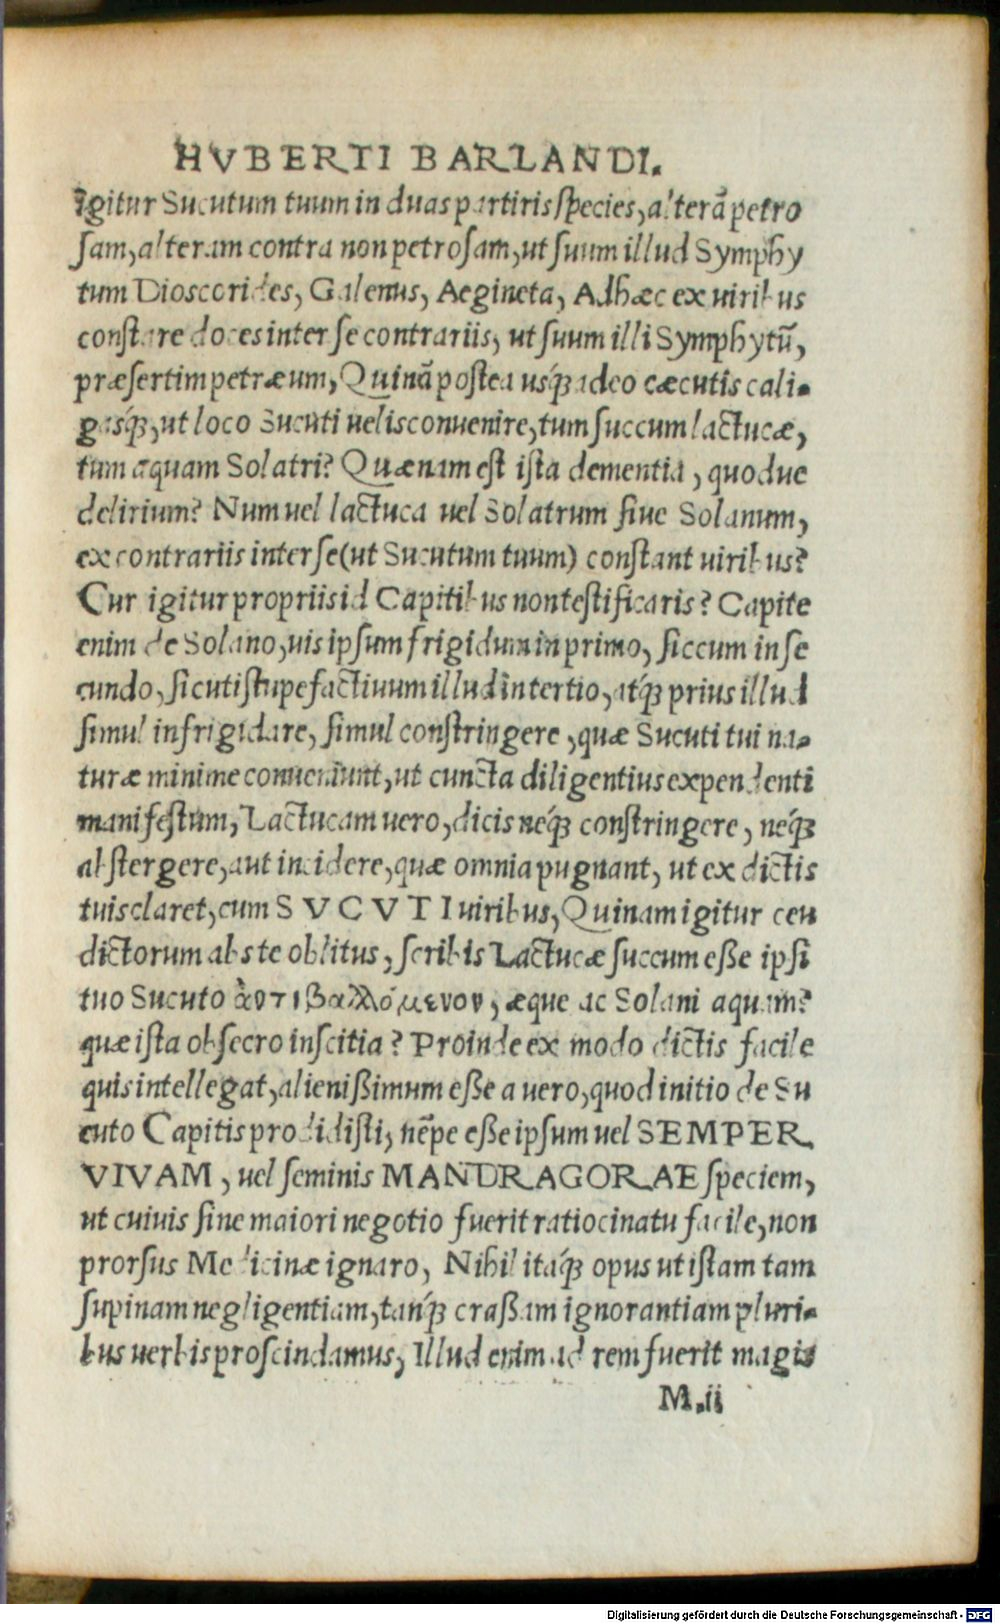 HVBERTI BARLANDI.
Igitur Sucutum tuum in duas partiris species, alterā petro
sam, alteram contra non petrosam, ut suum illud Symphy
tum Dioscorides, Galenus, Aegineta, Adhæc ex viribus
constare doces inter se contrariis, ut suum illi Symphytū,
præsertim petræum, Quinā postea usq́ꝫ adeo cæcutis cali-
gasq́ꝫ, ut loco Sucuti uelis conuenire, tum succum lactucæ,
tum aquam Solatri? Quænam est ista dementia, quodue
delirium? Num uel lactuca uel Solatrum siue Solanum,
ex contrariis inter se (ut Sucutum tuum) constant uiribus?
Cur igitur propriis id Capitibus non testificaris? Capite
enim de Solano, uis ipsum frigidum in primo, siccum in se
cundo, sicuti stupefactiuum illud in tertio, atq́ꝫ prius illud
simul infrigidare, simul constringere, quæ Sucuti tui na-
turæ minime conueniunt, ut cuncta diligentius expendenti
manifestum, Lactucam uero, dicis neq́ꝫ constringere, neq́ꝫ
abstergere, aut incidere, quæ omnia pugnant, ut ex dictis
tuis claret, cum SVCVTI uiribus, Quinam igitur ceu
dictorum abs te oblitus, scribis Lactucæ succum eße ipsi
tuo Sucuto ἀντιβαλλόμενον, æque ac Solani aquam?
quæ ista obsecro inscitia? Proinde ex modo dictis facile
quis intellegat, alienißimum eße a uero, quod initio de Su
cuto Capitis prodidisti, nēpe eße ipsum uel SEMPER
VIVAM, uel seminis MANDRAGORAE speciem,
ut cuiuis sine maiori negotio fuerit ratiocinatu facile, non
prorsus Medicinæ ignaro, Nihil itaq́ꝫ opus ut istam tam
supinam negligentiam, tanq́ꝫ craßam ignorantiam pluri-
bus uerbis proscindamus, Illud enim ad rem fuerit magis
M.ii
Digitalisierung gefördert durch die Deutsche Forschungsgemeinschaft - DFG